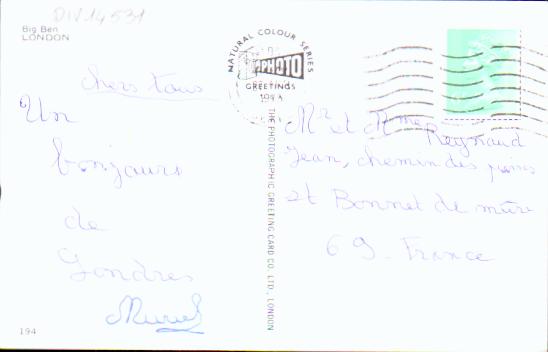 DIV14531
Big Ben
LONDON
chers tous
Un
bonjours
de
Londres
Muriel
194
NATURAL COLOUR SERIES
PHOTO
GREETINGS
194
THE PHOTOGRAPHIC GREETING CARD CO. LTD., LONDON
Mr et Mme Reynaud
Jean, chemin des pins
St Bonnet de mûre
69. France